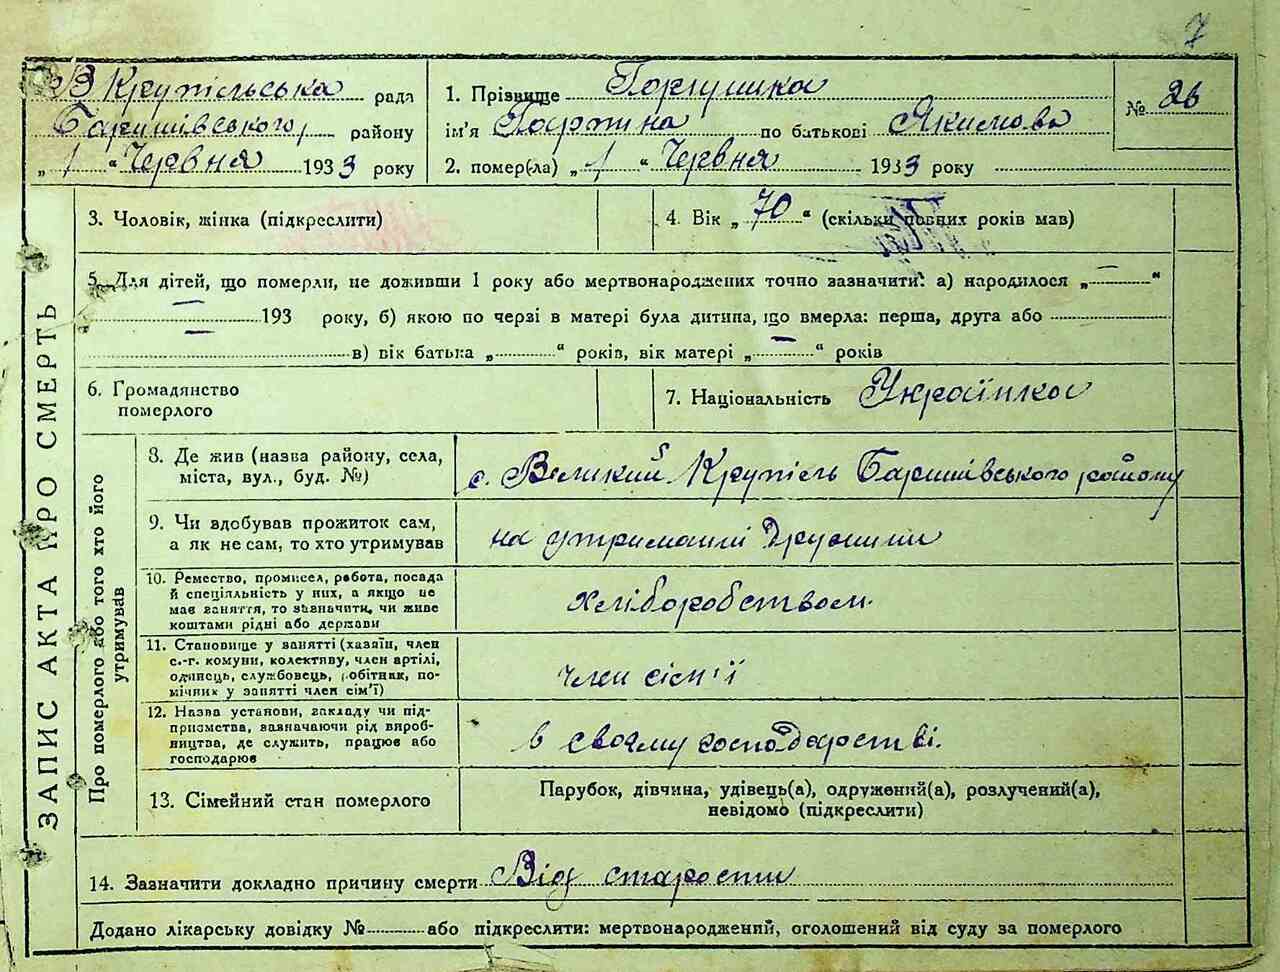 7
В Крупільська рада
Баришівського району
„ 1 “ Червня 1933 року
1. Прізвище
ім'я по батькові Якимова
№ 26
2. помер(ла) „ 1 “ Червня 1933 року
ЗАПИС АКТА ПРО СМЕРТЬ
3. Чоловік, жінка (підкреслити)
4. Вік „ 70 “ (скільки повних років мав)
5. Для дітей, що померли, не доживши 1 року або мертвонароджених точно зазначити: а) народилося „ — “
— 193 року, б) якою по черзі в матері була дитина, що вмерла: перша, друга або
— в) вік батька „ “ років, вік матері „ — “ років
6. Громадянство
померлого
7. Національність Українка
Про померлого або того хто його
утримував
8. Де жив (назва району, села,
міста, вул., буд. №)
с. Великий Крупіль Баришівського району
9. Чи здобував прожиток сам,
а як не сам, то хто утримував
на утриманні дружини
10. Ремество, промисел, робота, посада
й спеціяльність у них, а якщо не
має заняття, то зазначити, чи живе
коштами рідні або держави
хліборобством.
11. Становище у занятті (хазяїн, член
с.-г. комуни, колективу, член артілі,
одинець, службовець, робітник, по-
мічник у занятті член сім'ї)
член сім'ї
12. Назва установи, закладу чи під-
приємства, зазначаючи рід вироб-
ництва, де служить, працює або
господарює
в своєму господарстві.
13. Сімейний стан померлого
Парубок, дівчина, удівець(а), одружений(а), розлучений(а),
невідомо (підкреслити)
14. Зазначити докладно причину смерти Від старости
Додано лікарську довідку № або підкреслити: мертвонароджений, оголошений від суду за померлого